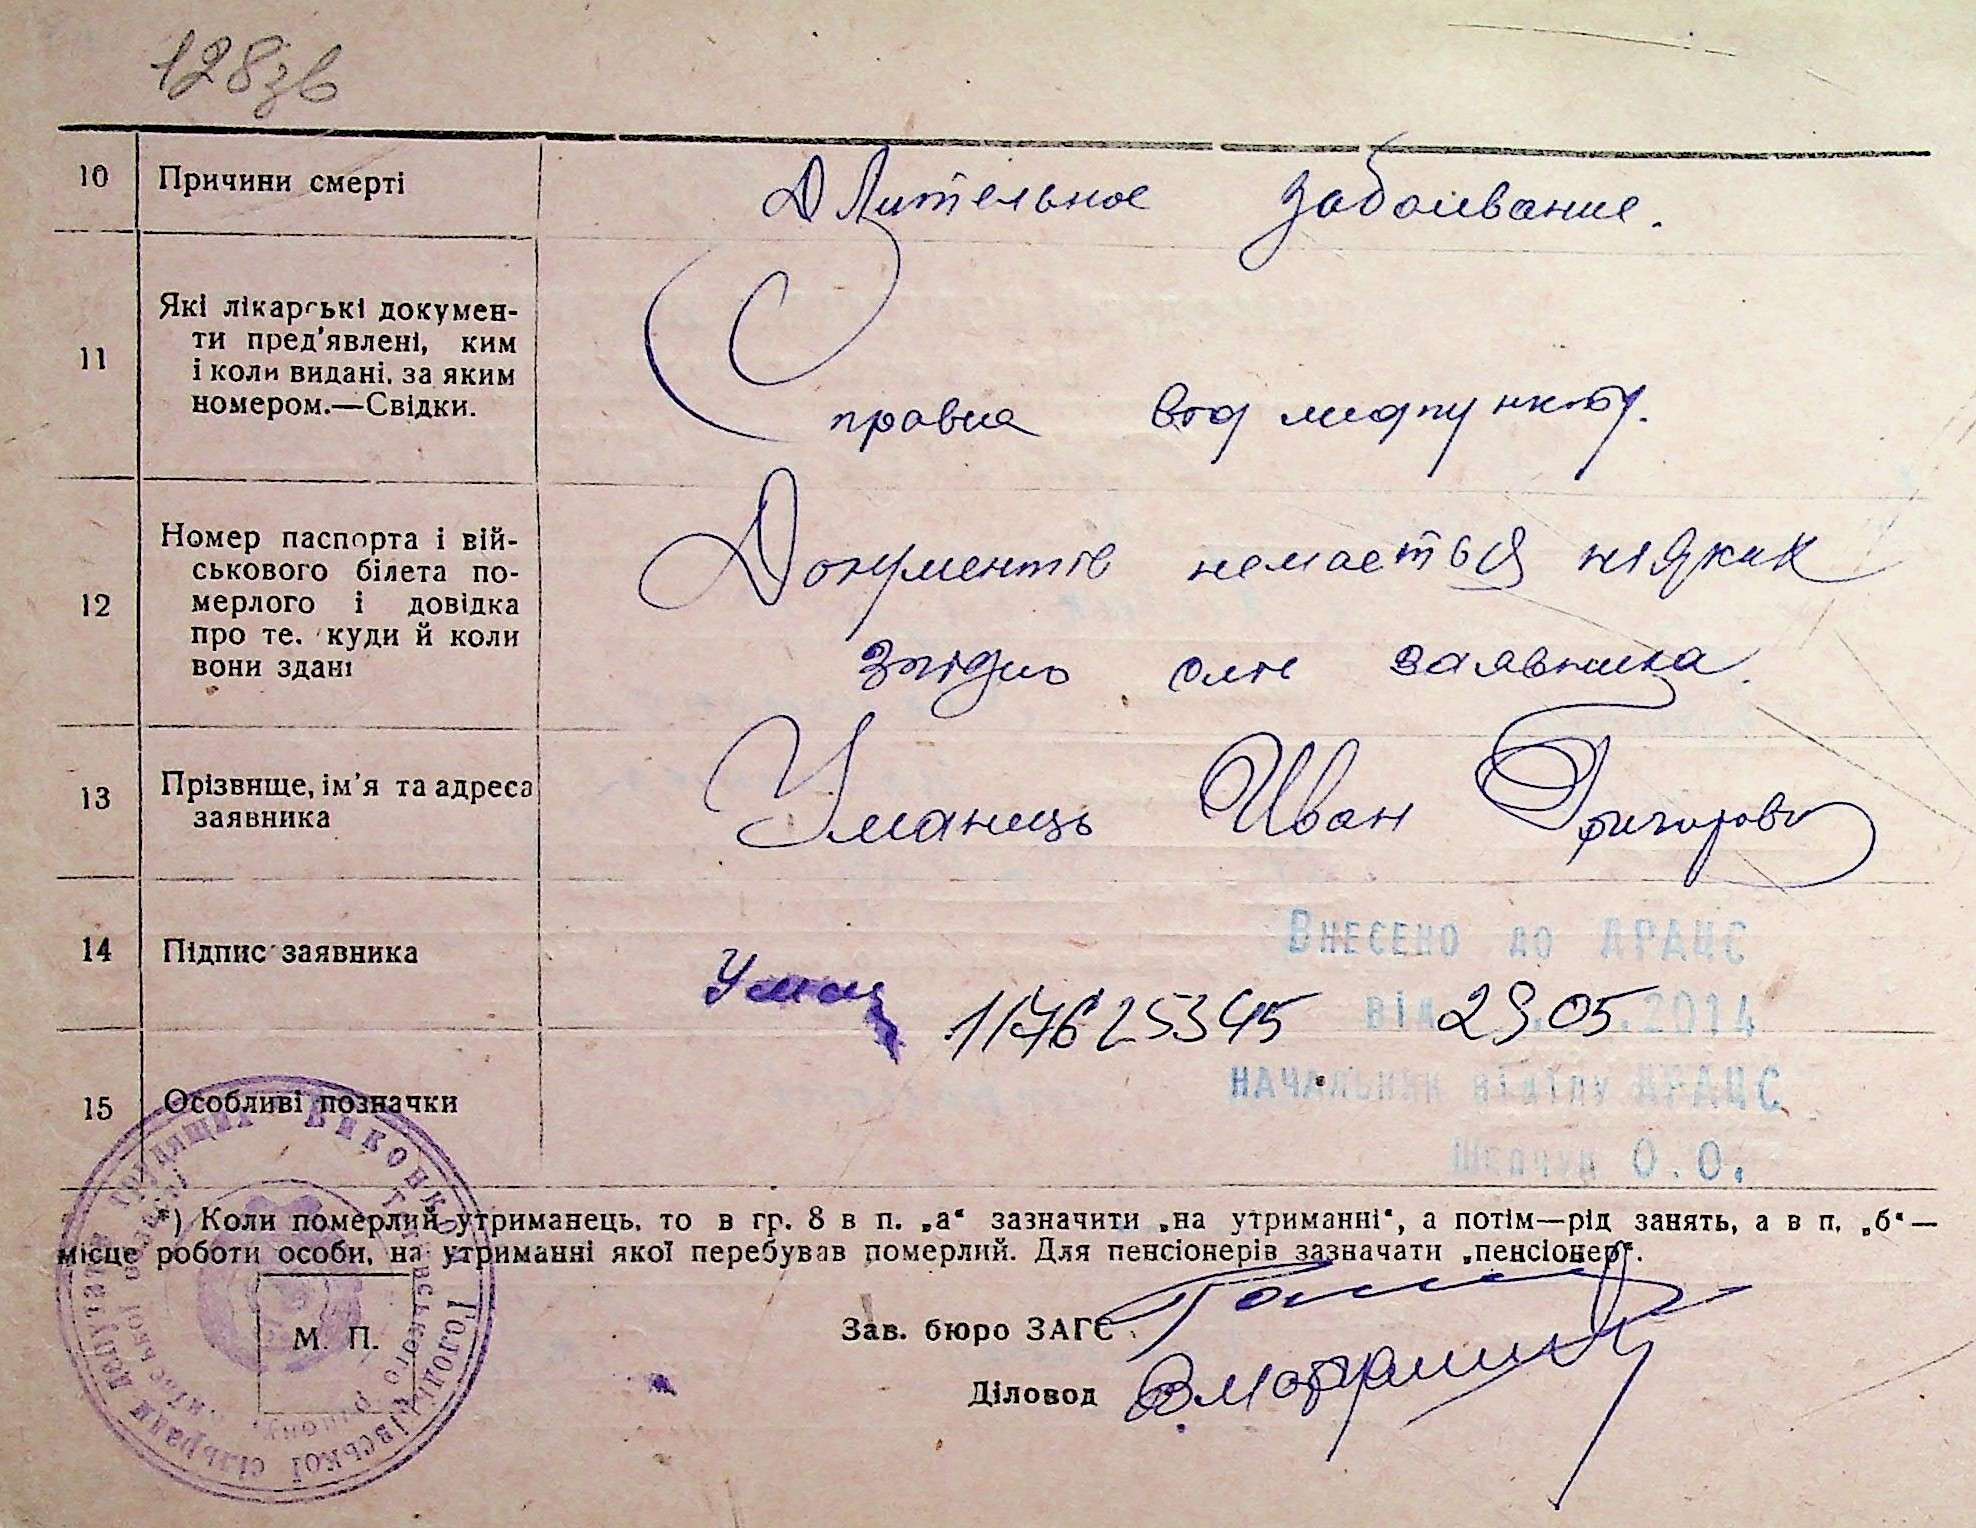 128зв
10 Причини смерті
Длительное заболивание.
11 Які лікарські докумен-
ти пред'явлені, ким
і коли видані, за яким
номером.—Свідки.
Справка від медпункту.
12 Номер паспорта і вій-
ськового білета по-
мерлого і довідка
про те, куди й коли
вони здані
Документів немаеться ніяких
згідно слів заявника.
13 Прізвище, ім'я та адреса
заявника
Уманець Иван Григорови
14 Підпис заявника
Уман
Внесено до ДРАЦС
від 29.05.2014
начальник відділу ДРАЦС
О.О.
15 Особливі позначки
*) Коли померлий утриманець, то в гр. 8 в п. „а“ зазначити „на утриманні“, а потім—рід занять, а в п. „б“—
місце роботи особи, на утриманні якої перебував померлий. Для пенсіонерів зазначати „пенсіонер“.
Зав. бюро ЗАГС
М. П.
Діловод
Виконком сільради депутатів трудящих
району